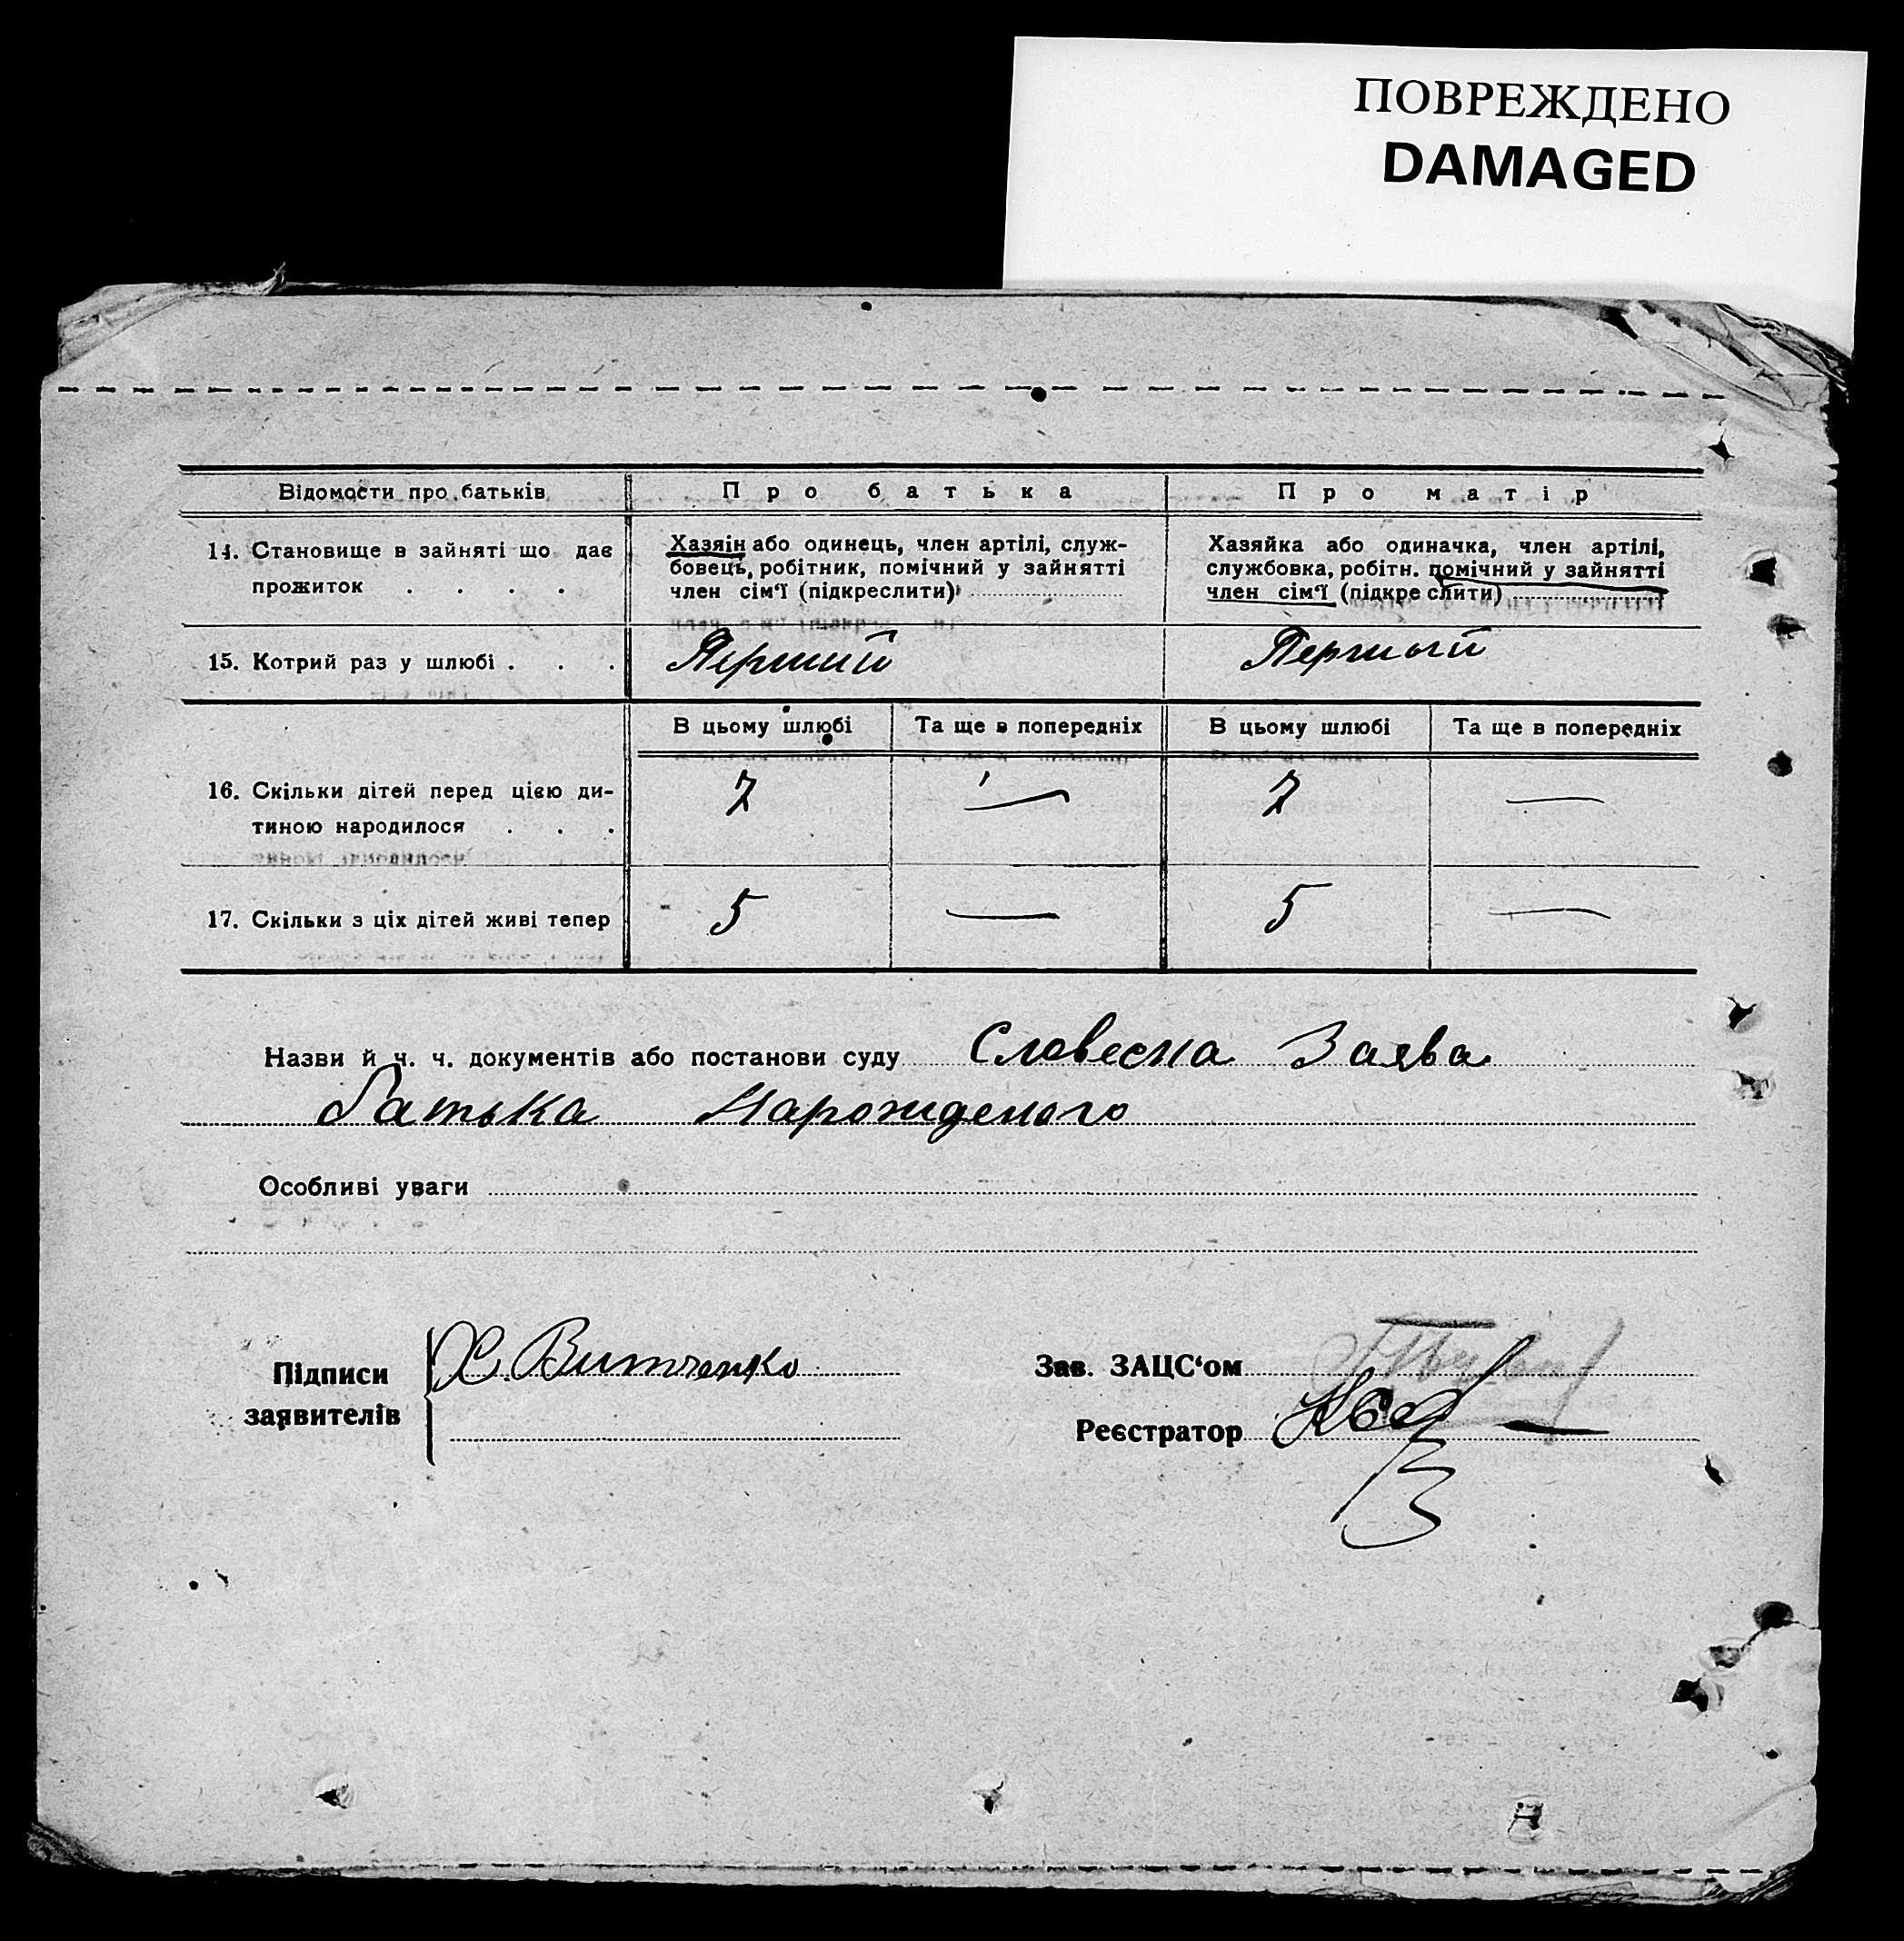 ПОВРЕЖДЕНО
DAMAGED
Відомости про батьків
Про батька
Про матір
14. Становище в зайняті що дає
прожиток . . . .
Хазяін або одинець, член артілі, служ-
бовець, робітник, помічний у зайнятті
член сім‘ї (підкреслити)
Хазяйка або одиначка, член артілі,
службовка, робітн. помічний у зайнятті
член сім‘ї (підкреслити)
15. Котрий раз у шлюбі . . .
Перший
Першый
В цьому шлюбі
Та ще в попередніх
В цьому шлюбі
Та ще в попередніх
16. Скільки дітей перед цією ди-
тиною народилося . . .
7 — 7 —
17. Скільки з ціх дітей живі тепер
5 — 5 —
Назви й ч. ч. документів або постанови суду Словесна Заява
Батька Нарожденого
Особливі уваги
Підписи
заявителів
Витченко
Зав. ЗАЦС‘ом
Реєстратор